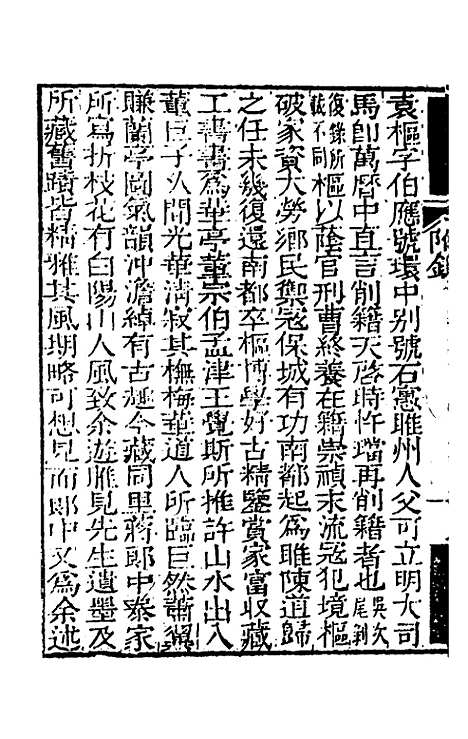 附錄
袁樞字伯應號環中別號石㥁睢州人父可立明大司
馬卽萬曆中直言削籍天啓時忤璫再削籍者也吳次尾剝
復錄所載不同樞以蔭官刑曹終養在籍崇禎末流寇犯境樞
破家資大勞鄉民禦寇保城有功南都起爲睢陳道歸
之任未幾復還南都卒樞博學好古精鑒賞家富收藏
工書書爲華亭董宗伯孟津王覺斯所推許山水出入
董巨子久間光華淸寂其橅梅華道人所臨巨然蕭翼
賺蘭亭圖氣韻沖澹綽有古趣今藏同里蔣郞中泰家
所寫折枝花有白陽山人風致余遊睢見先生遺墨及
所藏舊蹟皆精雅其風期略可想見而郞中又爲余述